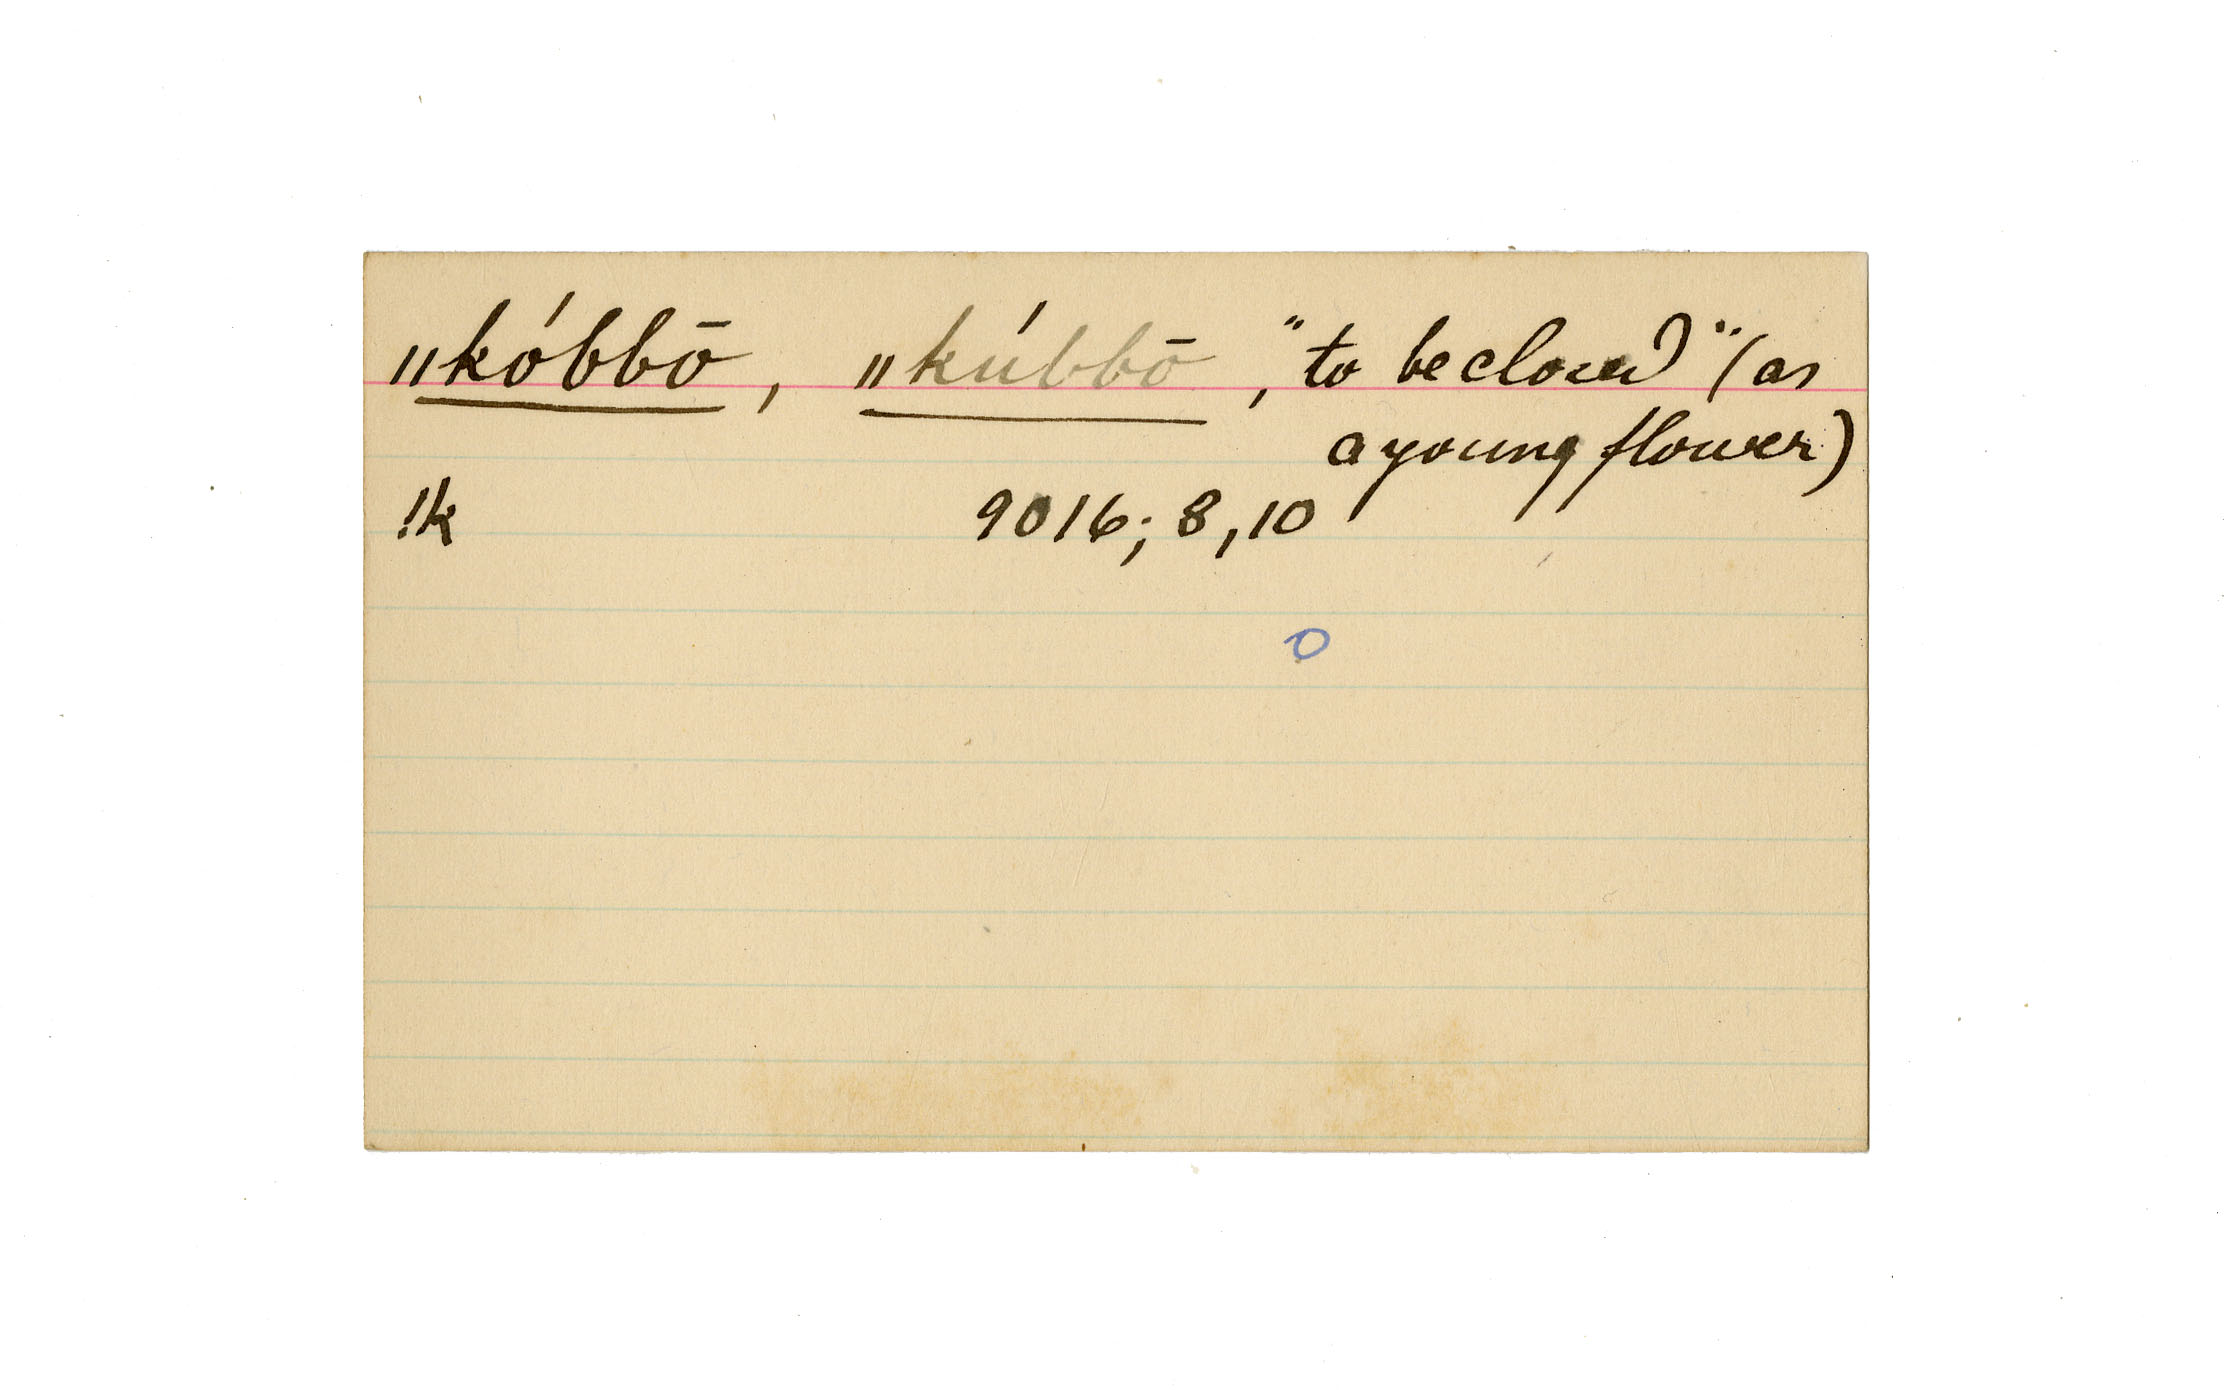 ǁkóbbō, ǁkúbbō, "to be closed" (as
a young flower)
!k 9016; 8, 10
O